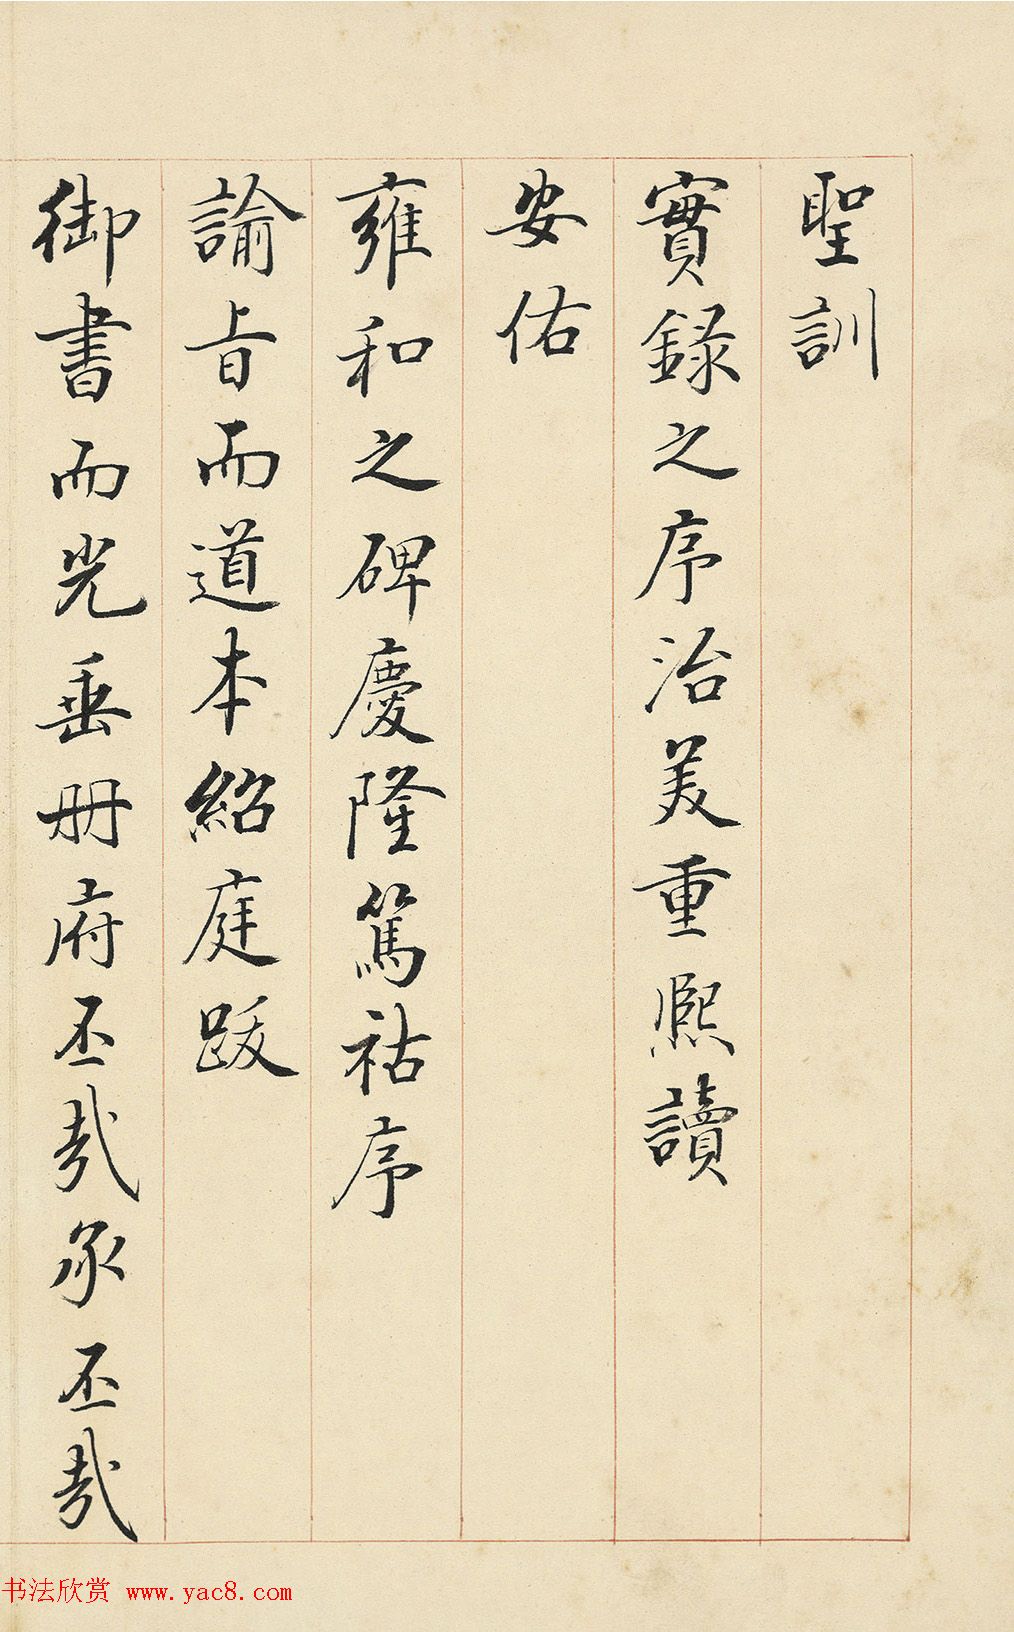 聖訓
實錄之序治美重熙讀
安佑
雍和之碑慶隆篤祜序
諭旨而道本紹庭跋
御書而光垂册府丕哉承丕哉
书法欣赏 www.yac8.com